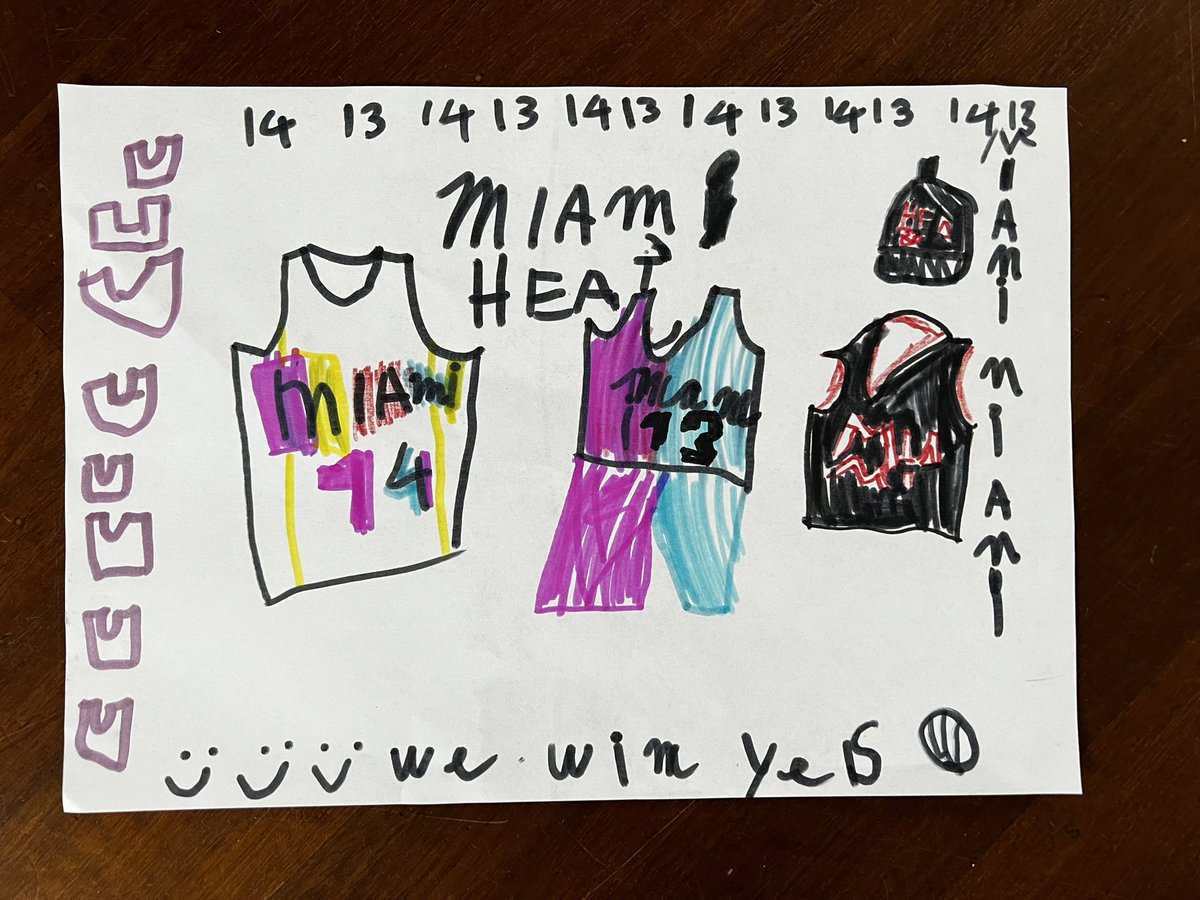 14 13 14 13 14 13 14 13 14 13 14 13
MIAMI
HEAT
MIAMi
14
MIAMI
13
HEA
MIAMi MIAMI
we win yes